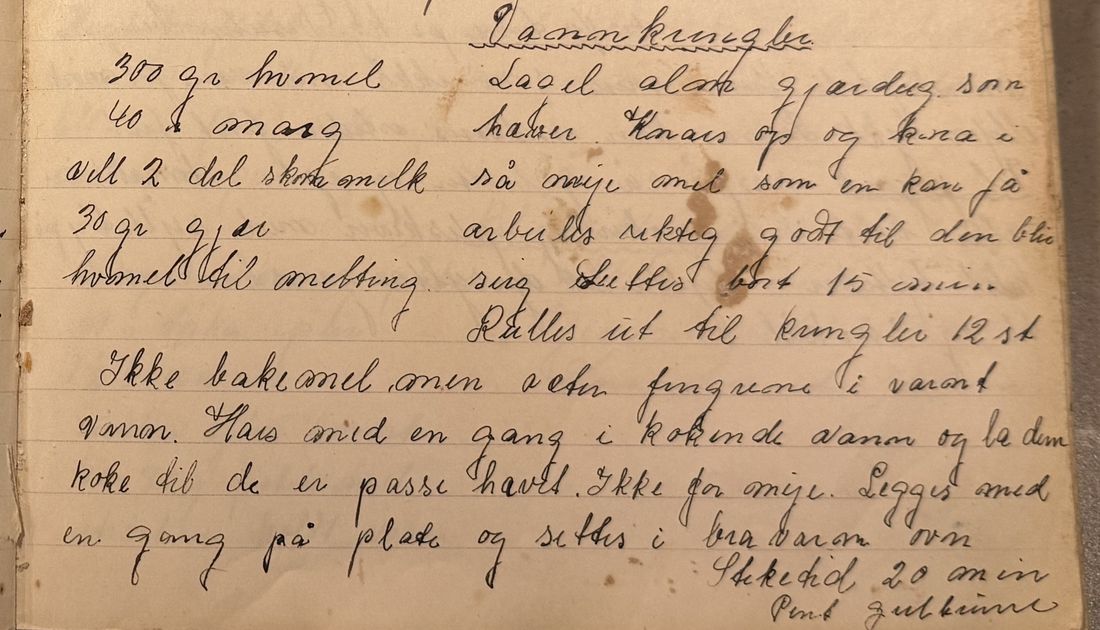 Vannkringler
300 gr hvmel
40 " marg
vell 2 del skommelk
30 gr gjær
hvmel til metting.
Laget alm gjærdeig som
hæver. Knaes op og kna i
så meje mel som en kan få
arbeides riktig godt til den blir
seig Settes bort 15 min
Rulles ut til kringler 12 st
Ikke bakemel men væter fingrene i varmt
vann. Haes med en gang i kokende vann og la dem
koke til de er passe hævet. Ikke for meje. Legges med
en gang på plate og settes i bra varm ovn
Steketid 20 min
Pent gulbrune